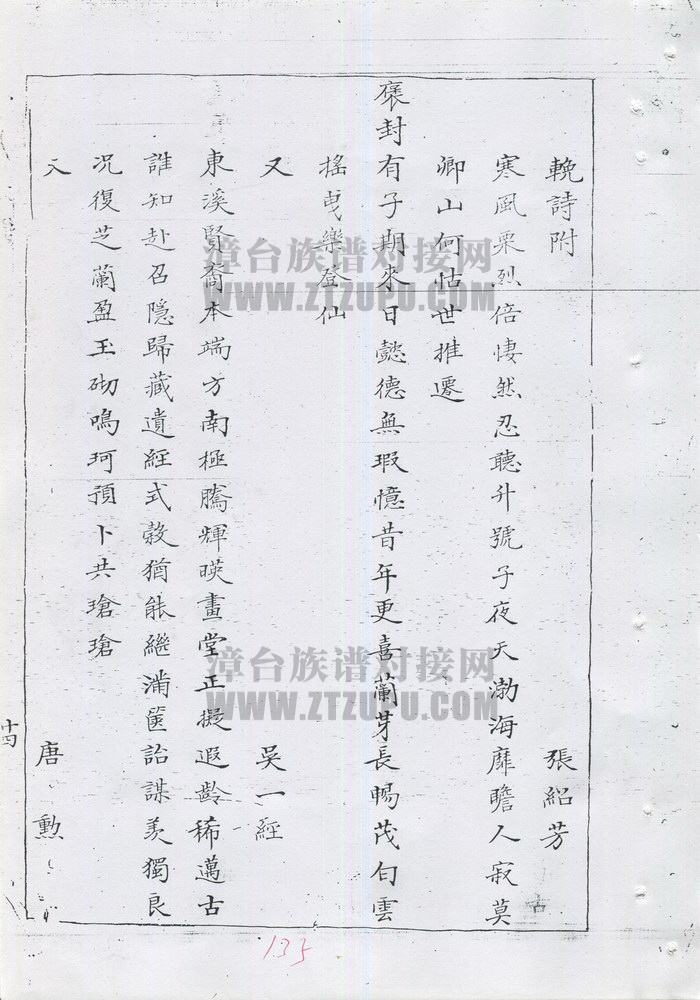 輓詩附 張紹芳
寒風栗烈倍悽然忍聽升號子夜天渤海靡瞻人寂莫
卿山何怙世推遷
褒封有子期來日懿德無瑕憶昔年更喜蘭芽長暢茂白雲
搖曳樂登仙
又 吳一經
東溪賢裔本端方南極騰輝暎畫堂正擬遐齡稀邁古
誰知赴召隱歸藏遺經式穀猶能繼滿篋詒謀羨獨良
況復芝蘭盈玉砌鳴珂預卜共瑲瑲
又 唐勳
十四
古
135
漳台族谱对接网
WWW.ZTZUPU.COM
漳台族谱对接网
WWW.ZTZUPU.COM